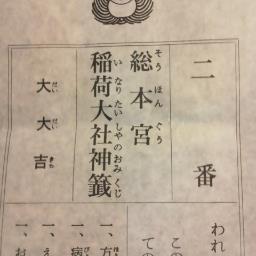 二番
われ
この
ての
総本宮
そうほんぐう
稲荷大社神籤
いなりたいしゃのおみくじ
大大吉
だいだいきち
一、方
一、病
一、え
一、お